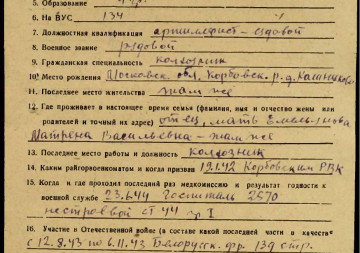 5. Образование
6. На ВУС 134
7. Должностная квалификация артиллерист - ездовой
8. Военное звание рядовой
9. Гражданская специальность колхозник
10. Место рождения Московск. обл. Корбовск. р-д.
11. Последнее место жительства там же
12. Где проживает в настоящее время семья (фамилия, имя и отчество жены или
родителей и точный их адрес) отец, мать
Матрена Васильевна - там же
13. Последнее место работы и должность колхозник
14. Каким райгорвоенкоматом и когда призван 19.1.42 Корбовским РВК
15. Когда и где проходил последний раз медкомиссию и результат годности к
военной службе 23.6.44 Госпиталь 2570
нестроевой ст 44 гр I
16. Участие в Отечественной войне (в составе какой последней части в качестве
с 12.8.43 по 6.11.43 Белорусск. фр. 139 стр.